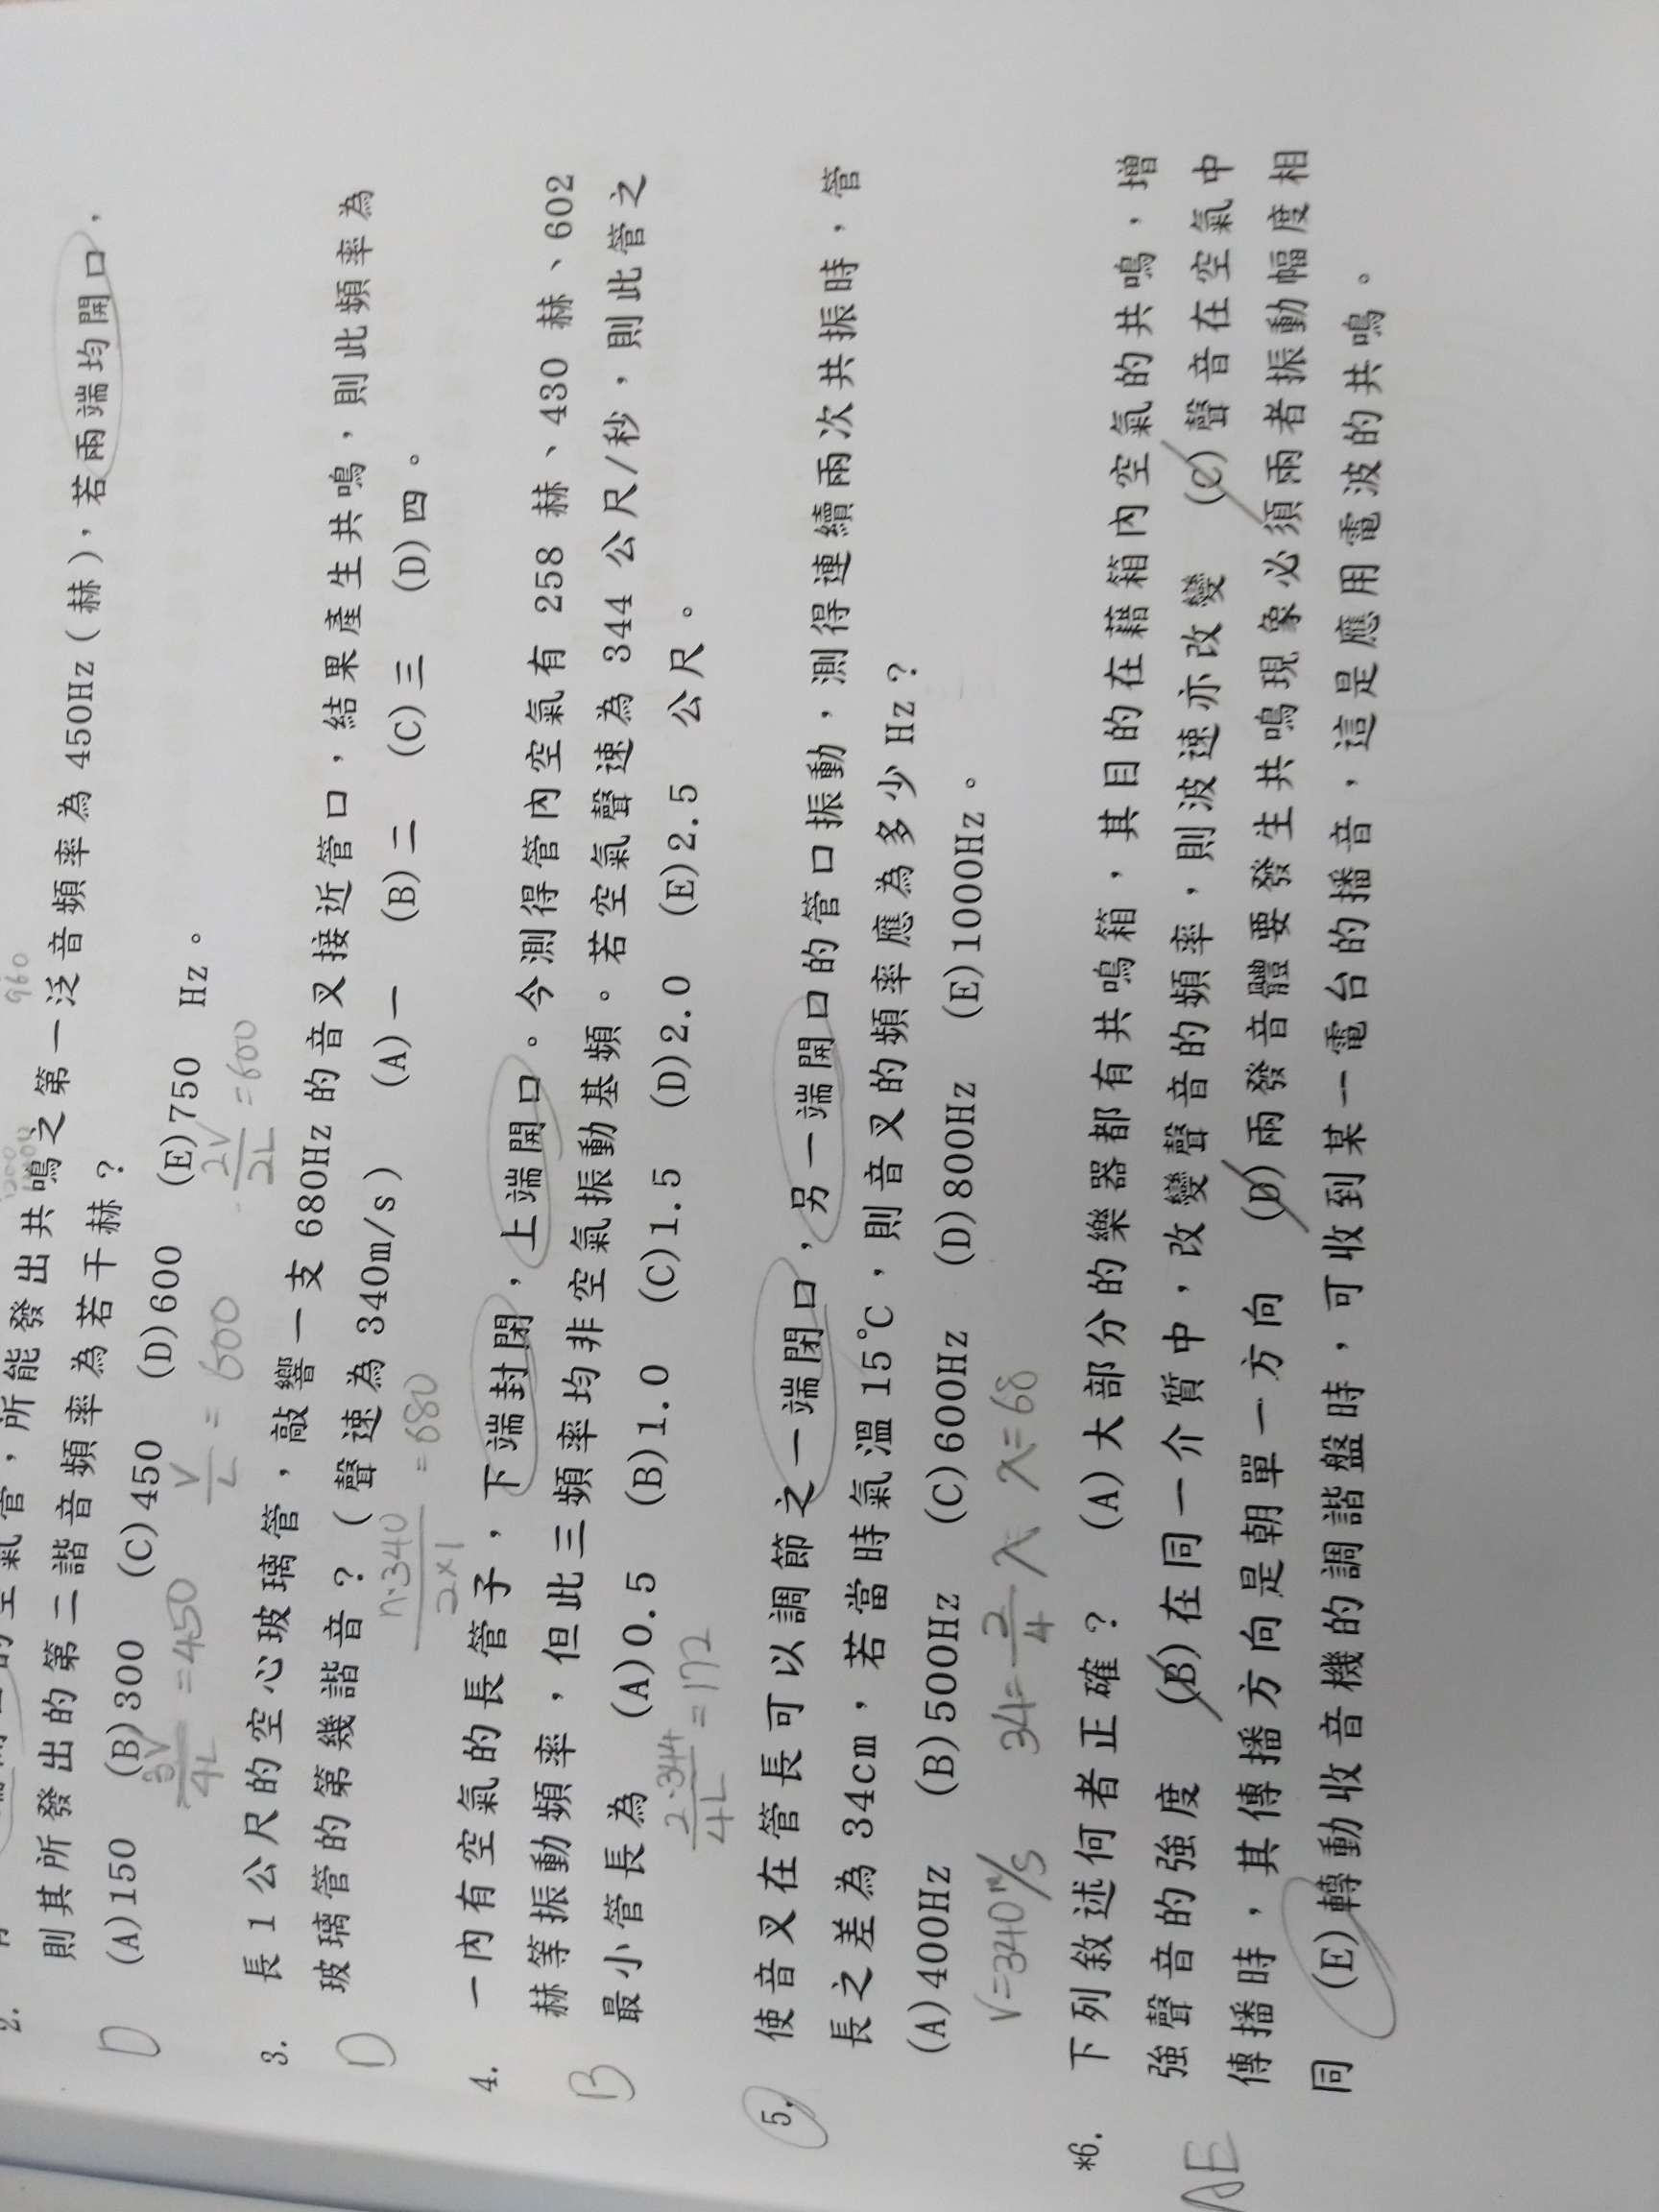 960
的空氣管，所能發出共鳴之第一泛音頻率為 450Hz（赫），若兩端均開口，
2.
則其所發出的第二諧音頻率為若干赫？
D
(A)150 (B)300 (C)450 (D)600 (E)750 Hz。
3V/4L =450 V/L = 600 2V/2L =600
3. 長 1 公尺的空心玻璃管，敲響一支 680Hz 的音叉接近管口，結果產生共鳴，則此頻率為
玻璃管的第幾諧音？（聲速為 340m/s） (A)一 (B)二 (C)三 (D)四。
D
n·340/2×1 =680
4. 一內有空氣的長管子，下端封閉，上端開口。今測得管內空氣有 258 赫、430 赫、602
赫等振動頻率，但此三頻率均非空氣振動基頻。若空氣聲速為 344 公尺/秒，則此管之
B
最小管長為 (A)0.5 (B)1.0 (C)1.5 (D)2.0 (E)2.5 公尺。
2·344/4L =172
5. 使音叉在管長可以調節之一端閉口，另一端開口的管口振動，測得連續兩次共振時，管
長之差為 34cm，若當時氣溫 15℃，則音叉的頻率應為多少 Hz？
(A)400Hz (B)500Hz (C)600Hz (D)800Hz (E)1000Hz。
V=340m/s 34=2/4 λ λ=68
*6. 下列敘述何者正確？ (A)大部分的樂器都有共鳴箱，其目的在藉箱內空氣的共鳴，增
AE
強聲音的強度 (B)在同一介質中，改變聲音的頻率，則波速亦改變 (C)聲音在空氣中
傳播時，其傳播方向是朝單一方向 (D)兩發音體要發生共鳴現象必須兩者振動幅度相
同 (E)轉動收音機的調諧盤時，可收到某一電台的播音，這是應用電波的共鳴。